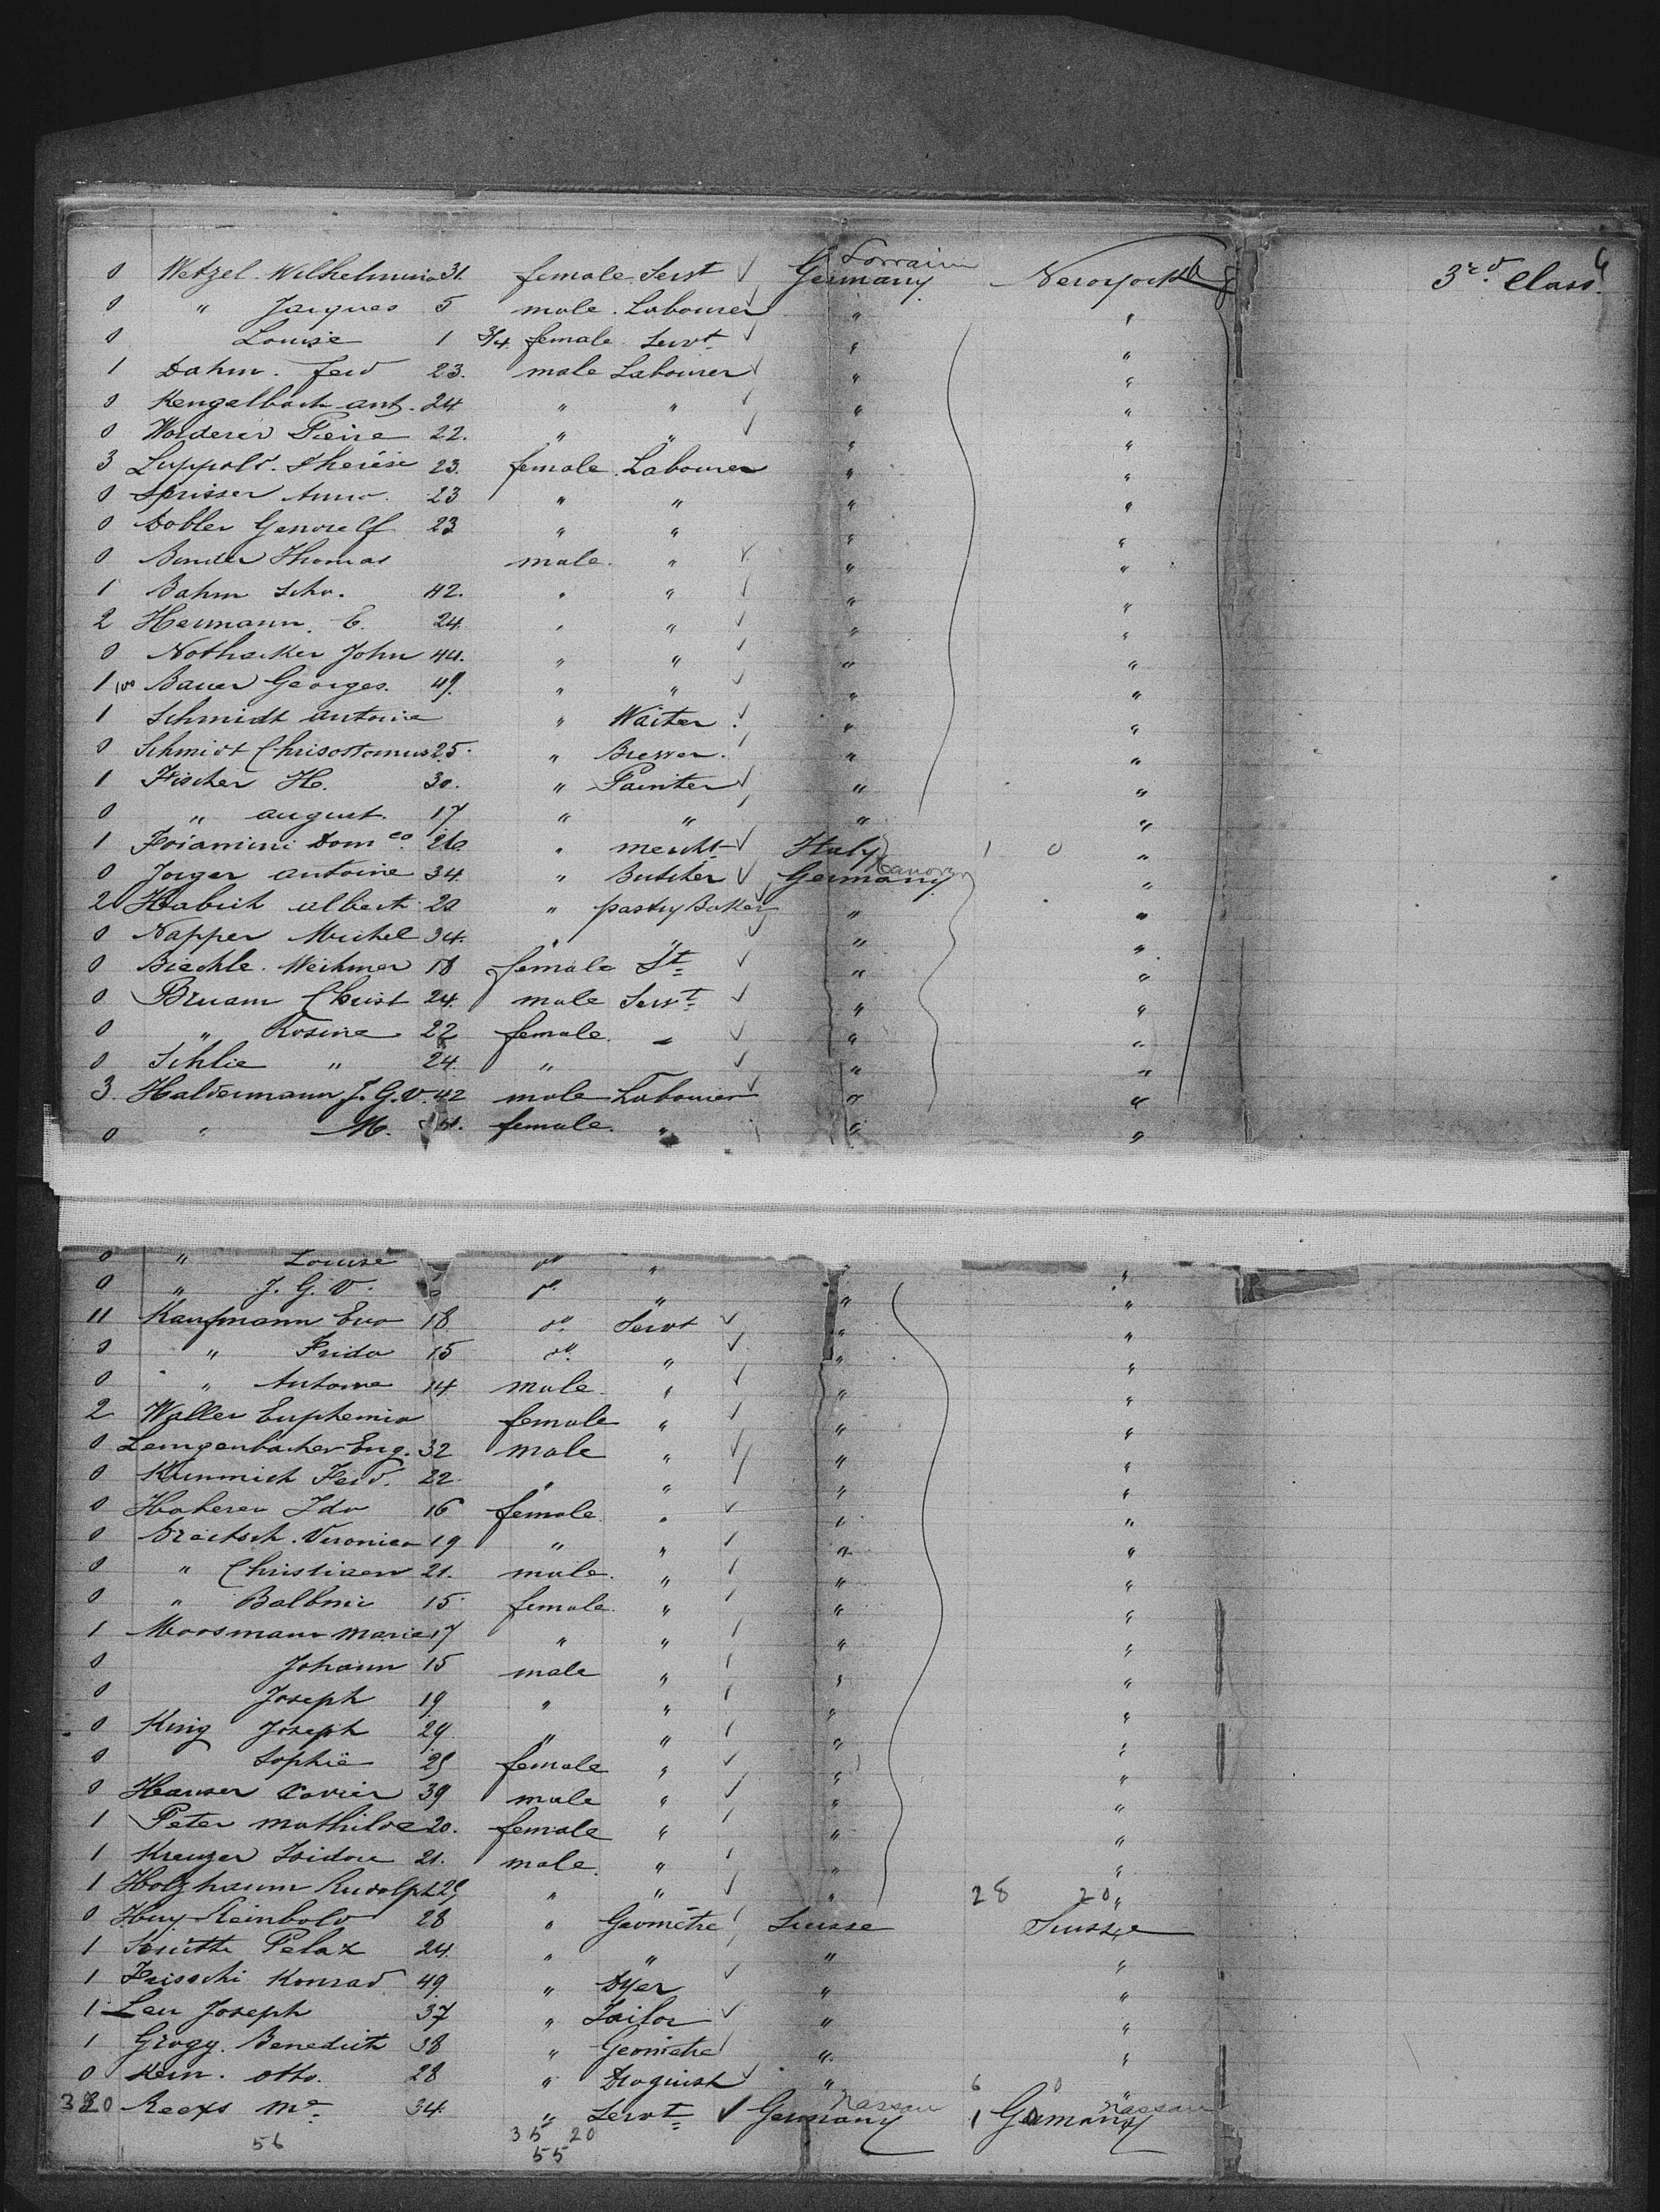 Lorrain 6
0 Wetzel. Wilhelmina 31. female Servt ✓ Germany New York 3rd Class.
0 " Jacques 5 male. Labourer ✓ " "
0 Louise 1 3/4 female Servt ✓ " "
1 Dahm. Ferd 23. male Labourer ✓ " "
0 Kengelbach ant. 24 " " ✓ " "
0 Worderer Pierre 22. " " ✓ " "
3 Luppold. Therése 23. female Labourer " "
0 Sprisser Anna. 23 " " " "
0 Dobler 23 " " " "
0 Binder Thomas male. " ✓ " "
1 Bahm 42. " " ✓ " "
2 Hermann. E. 24. " " ✓ " "
0 Nothacker John 44. " " ✓ " "
1 Bauer Georges. 49. " " ✓ " "
1 Schmidt antoine " Waiter ✓ " "
0 Schmidt Chrisostomus 25. " Brewer. ✓ " "
1 Fischer H. 30. " Painter ✓ " "
0 " august. 17 " " ✓ " "
1 Foiamini Dom co. 26 " mercht ✓ Italy 1 0 "
0 Jorger antoine 34 " Butcher ✓ Germany "
2 Habich albert 20 " pastry Baker " "
0 Napper Michel 34. " " ✓ " "
0 Biechle. 18 female St ✓ " "
0 Bruam Christ 24. male Servt ✓ " "
0 " Rosine 22 female. " ✓ " "
0 Schlie " 24. " ✓ " "
3. Haldermann J. G. V. 42 male Labourer ✓ " "
0 " M. female. " " "
0 " Louise do " "
0 " J. G. V. do " " "
11 Kaufmann Eva 18 do Servt ✓ " "
0 " Frida 15 do " ✓ " "
0 " Antoine 14 male. " ✓ " "
2 Waller Euphemia female " ✓ " "
0 Lemgenbacher Eug. 32 male " ✓ " "
0 Kummich Ferd. 22. " " ✓ " "
0 Haherer Ida 16 female " ✓ " "
0 Breitsch. Veronica 19 " " ✓ " "
0 " Christiaen 21. male. " ✓ " "
0 " Balbnie 15 female. " ✓ " "
1 Moosmann Maria 17 " " ✓ " "
0 Johann 15 male " ✓ " "
0 Joseph 19 " " ✓ " "
0 King Joseph 29 " " ✓ " "
0 Sophie 25 female " ✓ " "
0 Hauser Xavier 39 male " ✓ " "
1 Peter Mathilde 20. female " ✓ " "
1 Kreuzer Isidore 21. male. " ✓ " "
1 Holzhaum Rudolph 25 " " ✓ " 28 20 "
0 Huy Reinbold 28 " Geometre ✓ Suisse Suisse
1 Pelaz 24. " " " "
1 Konrad 49. " Dyer ✓ " "
1 Leu Joseph 37 " Tailor ✓ " "
1 Grogy. Benedict 38 " Geometre ✓ " "
0 Kern. otto. 28 " Droguist ✓ " 6 0 "
320 Reeps Mr. 34. " Servt ✓ Germany Nassau 1 Germany Nassau
56 35 20
55